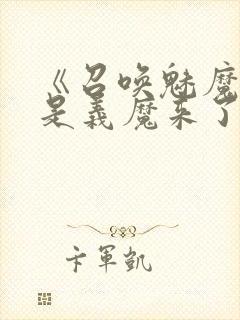 《召唤魅魔
是義魔来了
卡軍凱